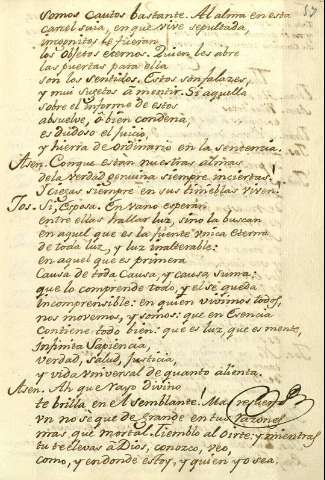 57
somos cautos bastante. Al alma en esta
carcel saia, en que vive sepultada,
incognitos te fueran
los objetos eternos. Quien les abre
las puertas para ella
son los sentidos. Estos son falazes,
y mui sugetos à mentir. Si aquella
sobre el informe de estos
absuelve, ò bien condena,
es dudoso el juicio,
y hierra de ordinario en la sentencia.
Asen. Conque estan nuestras almas
dela verdad genuina siempre inciertas!
I ciegas siempre en sus tinieblas viven!
Jos. Si, Esposa. En vano esperan
entre ellas hallar luz, sino la buscan
en aquel que es la fuente unica eterna
de toda luz, y luz inalterable:
en aquel que es primera
Causa de toda Causa, y causa suma:
que lo comprende todo, y el se queda
incomprensible: en quien vivimos todos,
nos movemos, y somos: que en Esencia
Contiene todo bien: que es luz, que es mente,
Infinita Sapiencia,
verdad, salud, justicia,
y vida Universal de quanto alienta.
Asen. Ah que Rayo Divino
te brilla en el semblante! Mas
un no sè que de grande en tus razones
mas que mortal. Tiemblo al oirte: y mientras
tu te elevas à Dios, conozco, veo,
como, y en donde estoy, y quien yo sea.